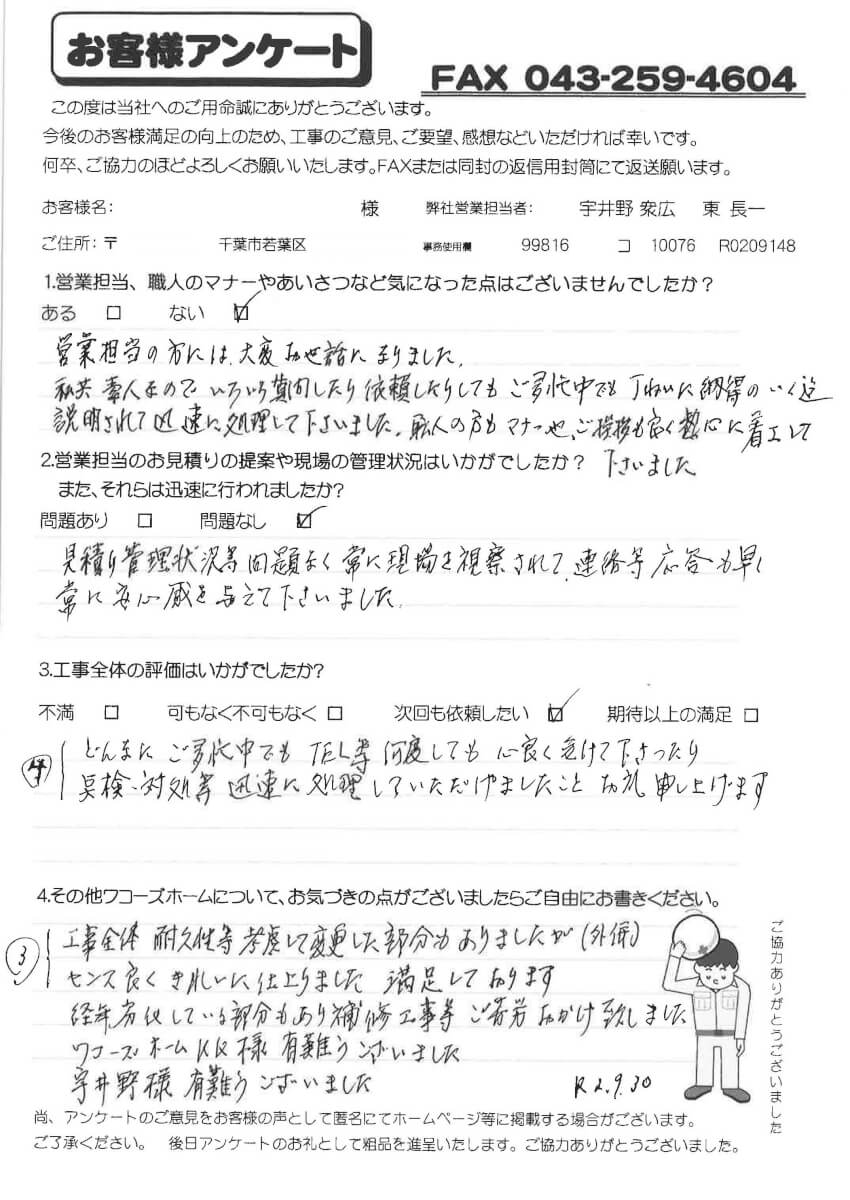 お客様アンケート
FAX 043-259-4604
この度は当社へのご用命誠にありがとうございます。
今後のお客様満足の向上のため、工事のご意見、ご要望、感想などいただければ幸いです。
何卒、ご協力のほどよろしくお願いいたします。FAXまたは同封の返信用封筒にて返送願います。
お客様名： 様 弊社営業担当者： 宇井野 衆広 東 長一
ご住所：〒 千葉市若葉区 事務使用欄 99816 コ 10076 R0209148
1.営業担当、職人のマナーやあいさつなど気になった点はございませんでしたか？
ある □ ない ☑
営業担当の方には、大変お世話になりました。
私共素人なので、いろいろ質問したり依頼したりしてもご多忙中でも丁ねいに納得のいく迄
説明されて迅速に処理して下さいました。職人の方もマナーや、ご挨拶も良く熱心に着工して
下さいました
2.営業担当のお見積りの提案や現場の管理状況はいかがでしたか？
また、それらは迅速に行われましたか？
問題あり □ 問題なし ☑
見積り管理状況等問題なく常に現場を視察されて、連絡等応答も早く
常に安心感を与えて下さいました。
3.工事全体の評価はいかがでしたか？
不満 □ 可もなく不可もなく □ 次回も依頼したい ☑ 期待以上の満足 □
④ どんなに ご多忙中でも TEL等 何度しても 心良く受けて下さったり
点検・対処等 迅速に処理していただけましたこと お礼申し上げます
4.その他ワコーズホームについて、お気づきの点がございましたらご自由にお書きください。
③ 工事全体 耐久性等考慮して変更した部分もありましたが(外併)
センス良くきれいに仕上りました 満足しております
経年劣化している部分もあり補修工事等ご苦労おかけ致しました
ワコーズホームKK様 有難うございました
宇井野様 有難うございました R2.9.30
ご協力ありがとうございました
尚、アンケートのご意見をお客様の声として匿名にてホームページ等に掲載する場合がございます。
ご了承ください。 後日アンケートのお礼として粗品を進呈いたします。ご協力ありがとうございました。